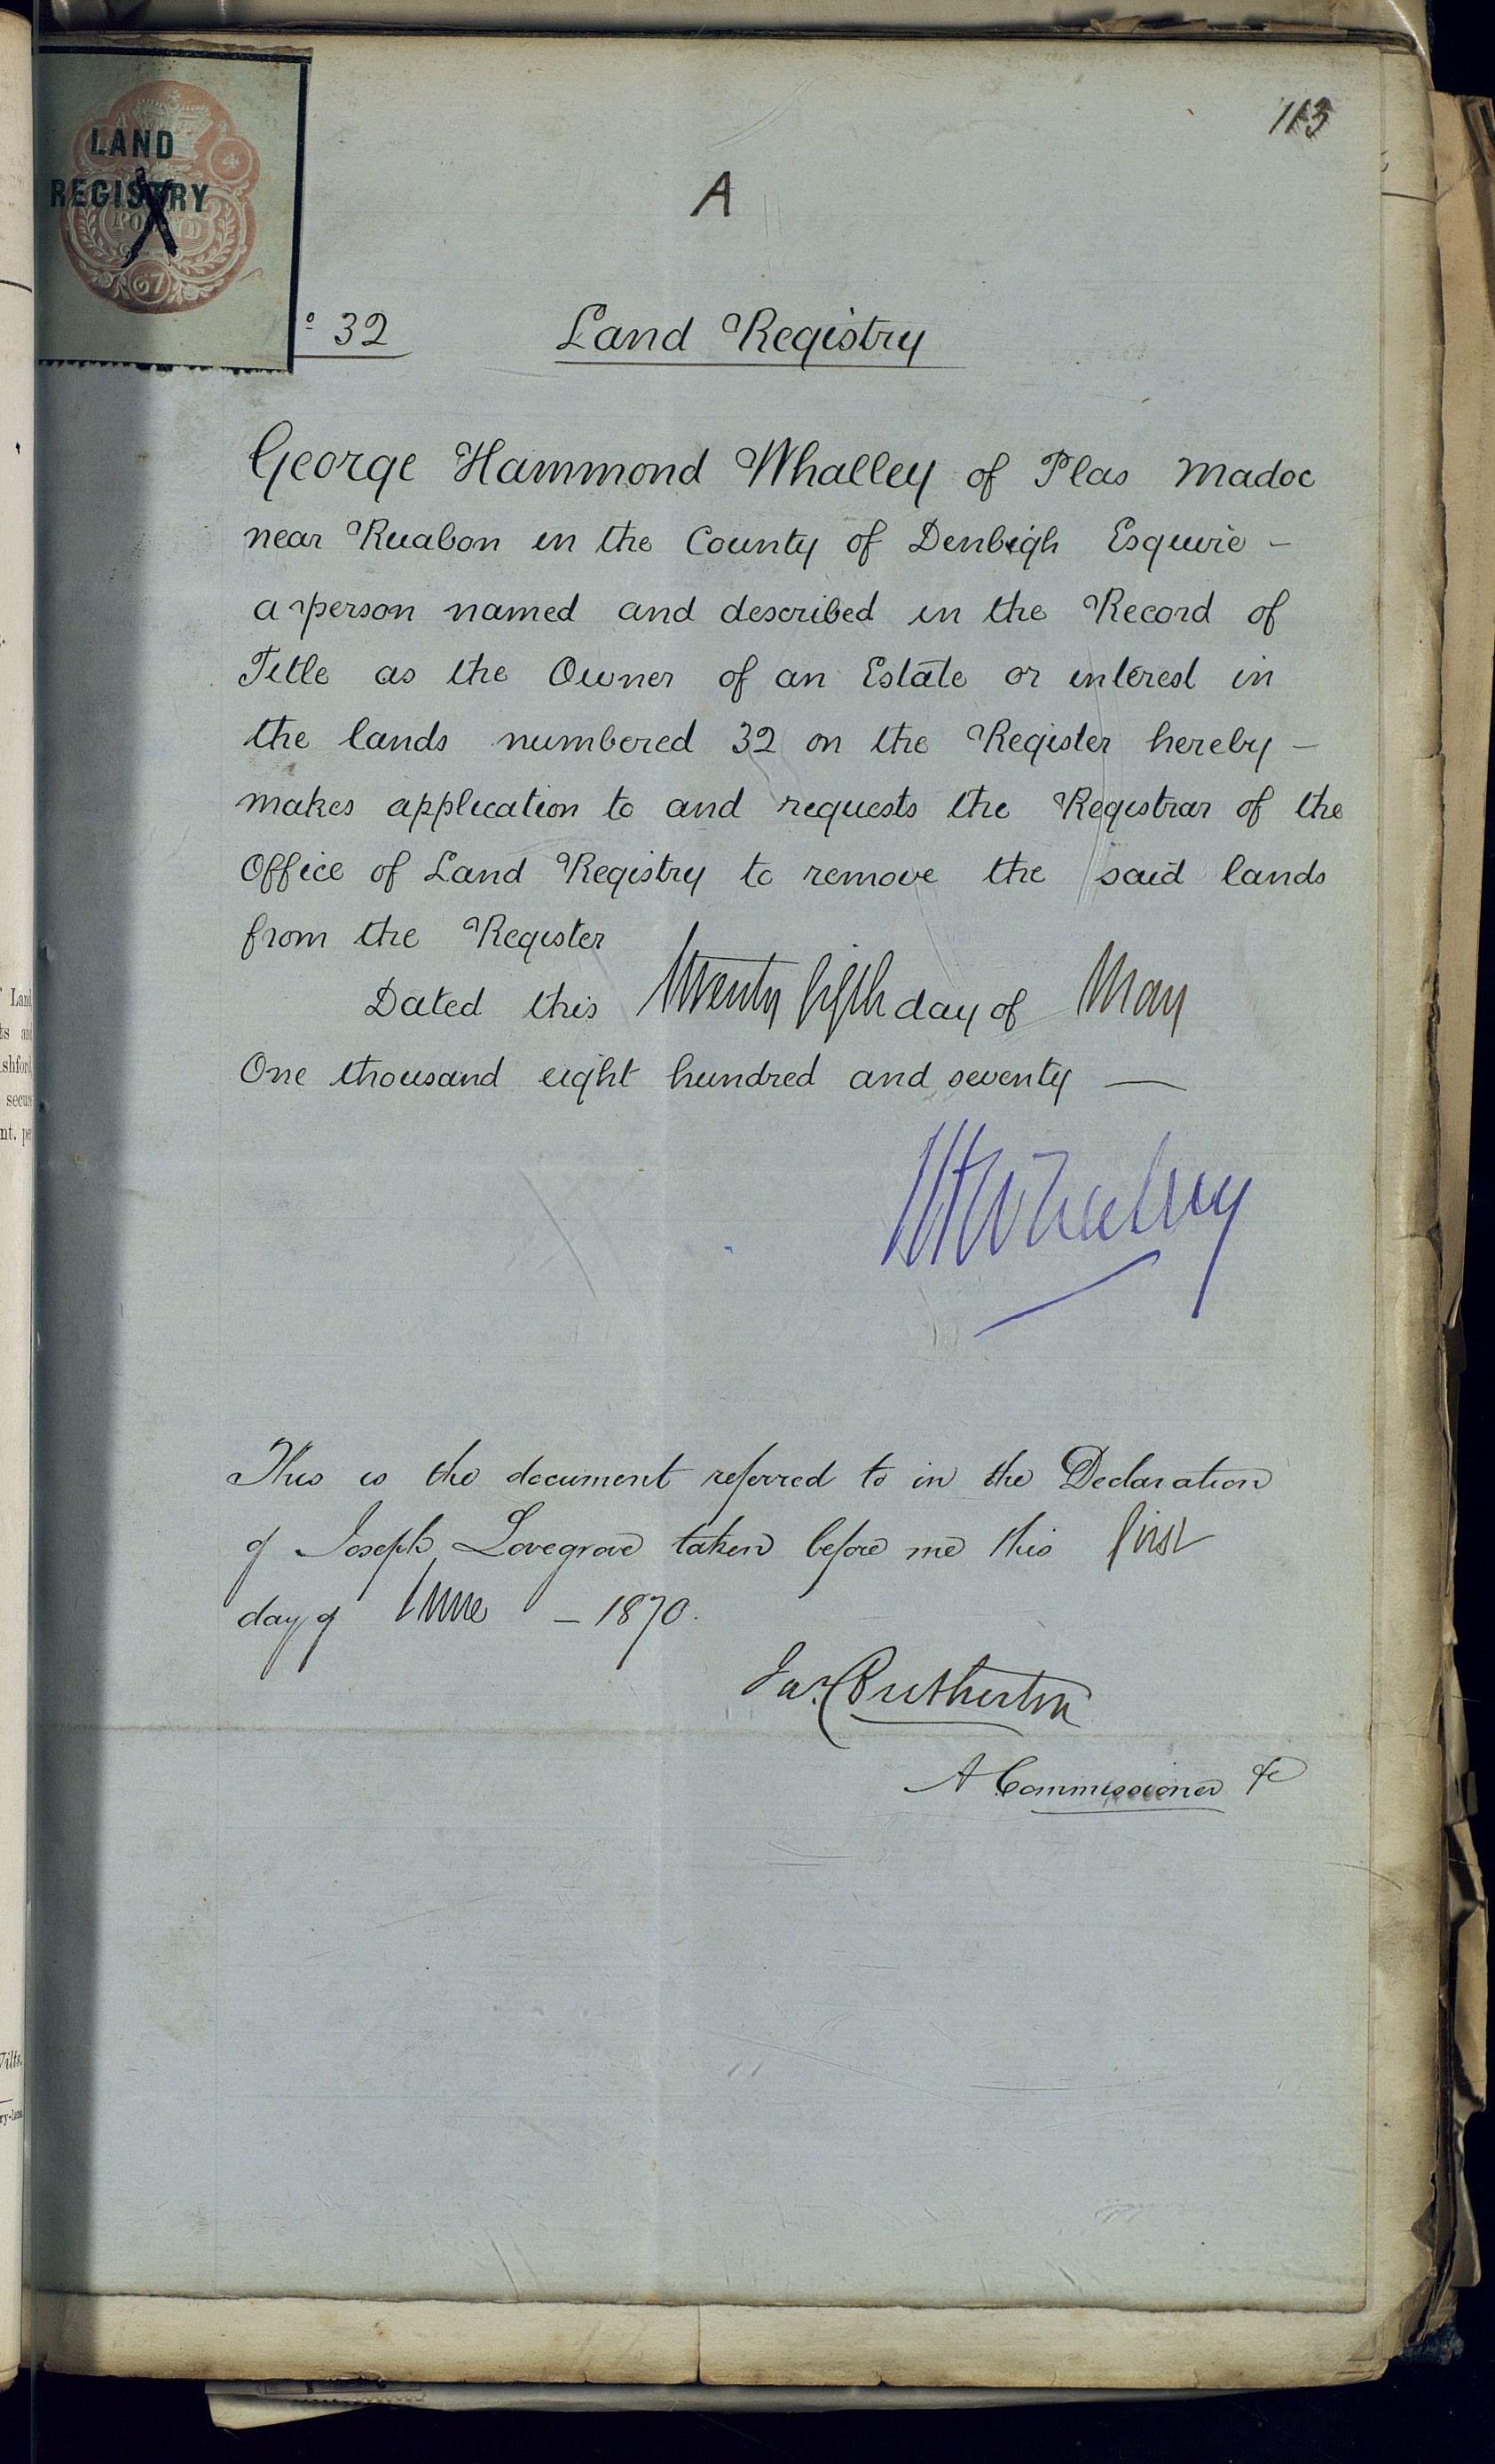 113
LAND
REGISTRY
4
POUND
67
A
º 32
Land Registry
George Hammond Whalley of Plas Madoc
near Ruabon in the County of Denbigh Esquire –
a person named and described in the Record of
Title as the Owner of an Estate or interest in
the lands numbered 32 on the Register hereby –
makes application to and requests the Registrar of the
Office of Land Registry to remove the said lands
from the Register
Dated this twenty fifth day of May
One thousand eight hundred and seventy —
GHWhalley
This is the document referred to in the Declaration
of Joseph Lovegrove taken before me this first
day of June – 1870.
Jas.
A Commissioner &c
Land
ts and
shford
secur
nt. pe
Wilts.
ry-lane